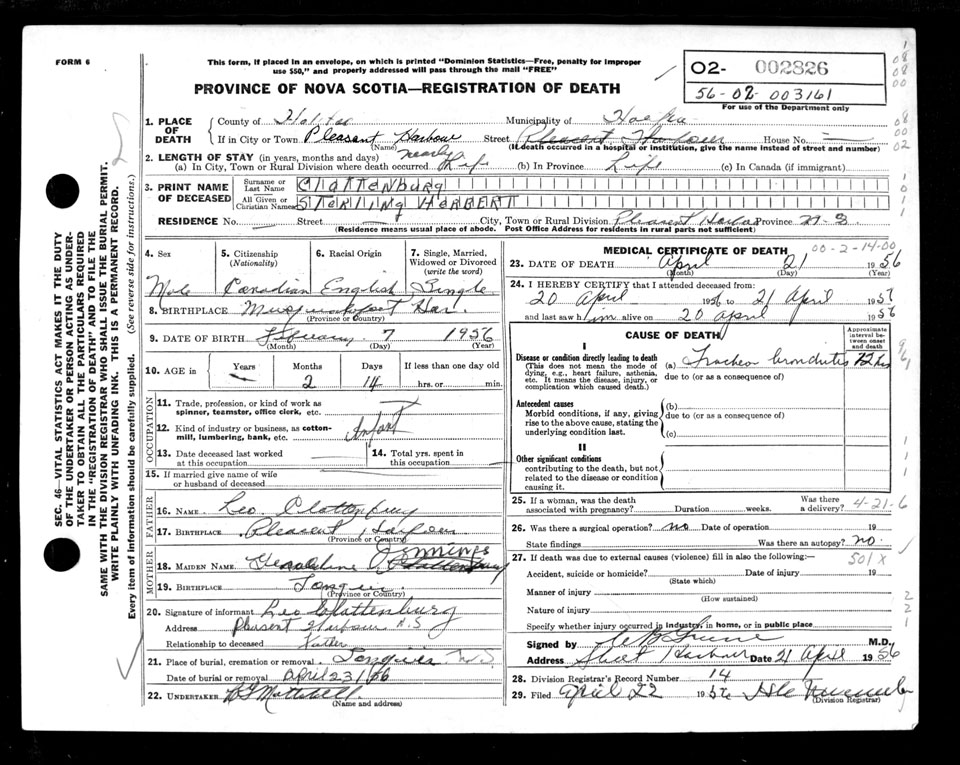 FORM 6
This form, if placed in an envelope, on which is printed "Dominion Statistics—Free, penalty for improper
use $50," and properly addressed will pass through the mail "FREE"
PROVINCE OF NOVA SCOTIA—REGISTRATION OF DEATH
02- 002826
56-02-003161
For use of the Department only
1. PLACE OF DEATH
County of Halifax Municipality of
If in City or Town Pleasant Harbour Street Pleasant Harbour House No.
(Name) (If death occurred in a hospital or institution, give the name instead of street and number)
2. LENGTH OF STAY (in years, months and days)
(a) In City, Town or Rural Division where death occurred nearly life (b) In Province Life (c) In Canada (if immigrant)
3. PRINT NAME OF DECEASED
Surname or Last Name Clattenburg
All Given or Christian Names STERLING HERBERT
RESIDENCE No. Street City, Town or Rural Division Pleasent Harbor Province N-S
(Residence means usual place of abode. Post Office Address for residents in rural parts not sufficient)
4. Sex
Male
5. Citizenship (Nationality)
Canadian
6. Racial Origin
English
7. Single, Married, Widowed or Divorced (write the word)
Single
8. BIRTHPLACE Har.
(Province or Country)
9. DATE OF BIRTH 7 1956
(Month) (Day) (Year)
10. AGE in
Years Months Days If less than one day old
2 14 hrs. or min.
OCCUPATION
11. Trade, profession, or kind of work as spinner, teamster, office clerk, etc.
12. Kind of industry or business, as cotton-mill, lumbering, bank, etc. Infant
13. Date deceased last worked at this occupation
14. Total yrs. spent in this occupation
15. If married give name of wife or husband of deceased
FATHER
16. NAME Leo Clattenburg
17. BIRTHPLACE Pleasent Harbour
(Province or Country)
MOTHER
18. MAIDEN NAME Geraldine Jennings Clattenburg
19. BIRTHPLACE
(Province or Country)
20. Signature of informant Leo Clattenburg
Address Pleasent Harbour N.S
Relationship to deceased Father
21. Place of burial, cremation or removal N.S
Date of burial or removal April 23/56
22. UNDERTAKER
(Name and address)
MEDICAL CERTIFICATE OF DEATH
00-2-14-00
23. DATE OF DEATH April 21 1956
(Month) (Day) (Year)
24. I HEREBY CERTIFY that I attended deceased from:
20 April 1956 to 21 April 1956
and last saw him alive on 20 April 1956
CAUSE OF DEATH
Approximate interval between onset and death
I
Disease or condition directly leading to death
(This does not mean the mode of dying, e.g., heart failure, asthenia, etc. It means the disease, injury, or complication which caused death.)
(a) Tracheo bronchitis 12 hrs
due to (or as a consequence of)
Antecedent causes
Morbid conditions, if any, giving rise to the above cause, stating the underlying condition last.
(b)
due to (or as a consequence of)
(c)
II
Other significant conditions
contributing to the death, but not related to the disease or condition causing it.
25. If a woman, was the death associated with pregnancy? Duration weeks. Was there a delivery?
4-21-6
26. Was there a surgical operation? no Date of operation 19
State findings Was there an autopsy? no.
27. If death was due to external causes (violence) fill in also the following:—
501X
Accident, suicide or homicide? Date of injury 19
(State which)
Manner of injury
(How sustained)
Nature of injury
Specify whether injury occurred in industry, in home, or in public place
Signed by M.D.
Address Sheet Harbour Date 21 April 1956
28. Division Registrar's Record Number 14
29. Filed April 22 1956
(Division Registrar)
SEC. 46—VITAL STATISTICS ACT MAKES IT THE DUTY
OF THE UNDERTAKER OR PERSON ACTING AS UNDER-
TAKER TO OBTAIN ALL THE PARTICULARS REQUIRED
IN THE "REGISTRATION OF DEATH" AND TO FILE THE
SAME WITH THE DIVISION REGISTRAR WHO SHALL ISSUE THE BURIAL PERMIT.
WRITE PLAINLY WITH UNFADING INK. THIS IS A PERMANENT RECORD.
Every item of information should be carefully supplied. (See reverse side for instructions.)